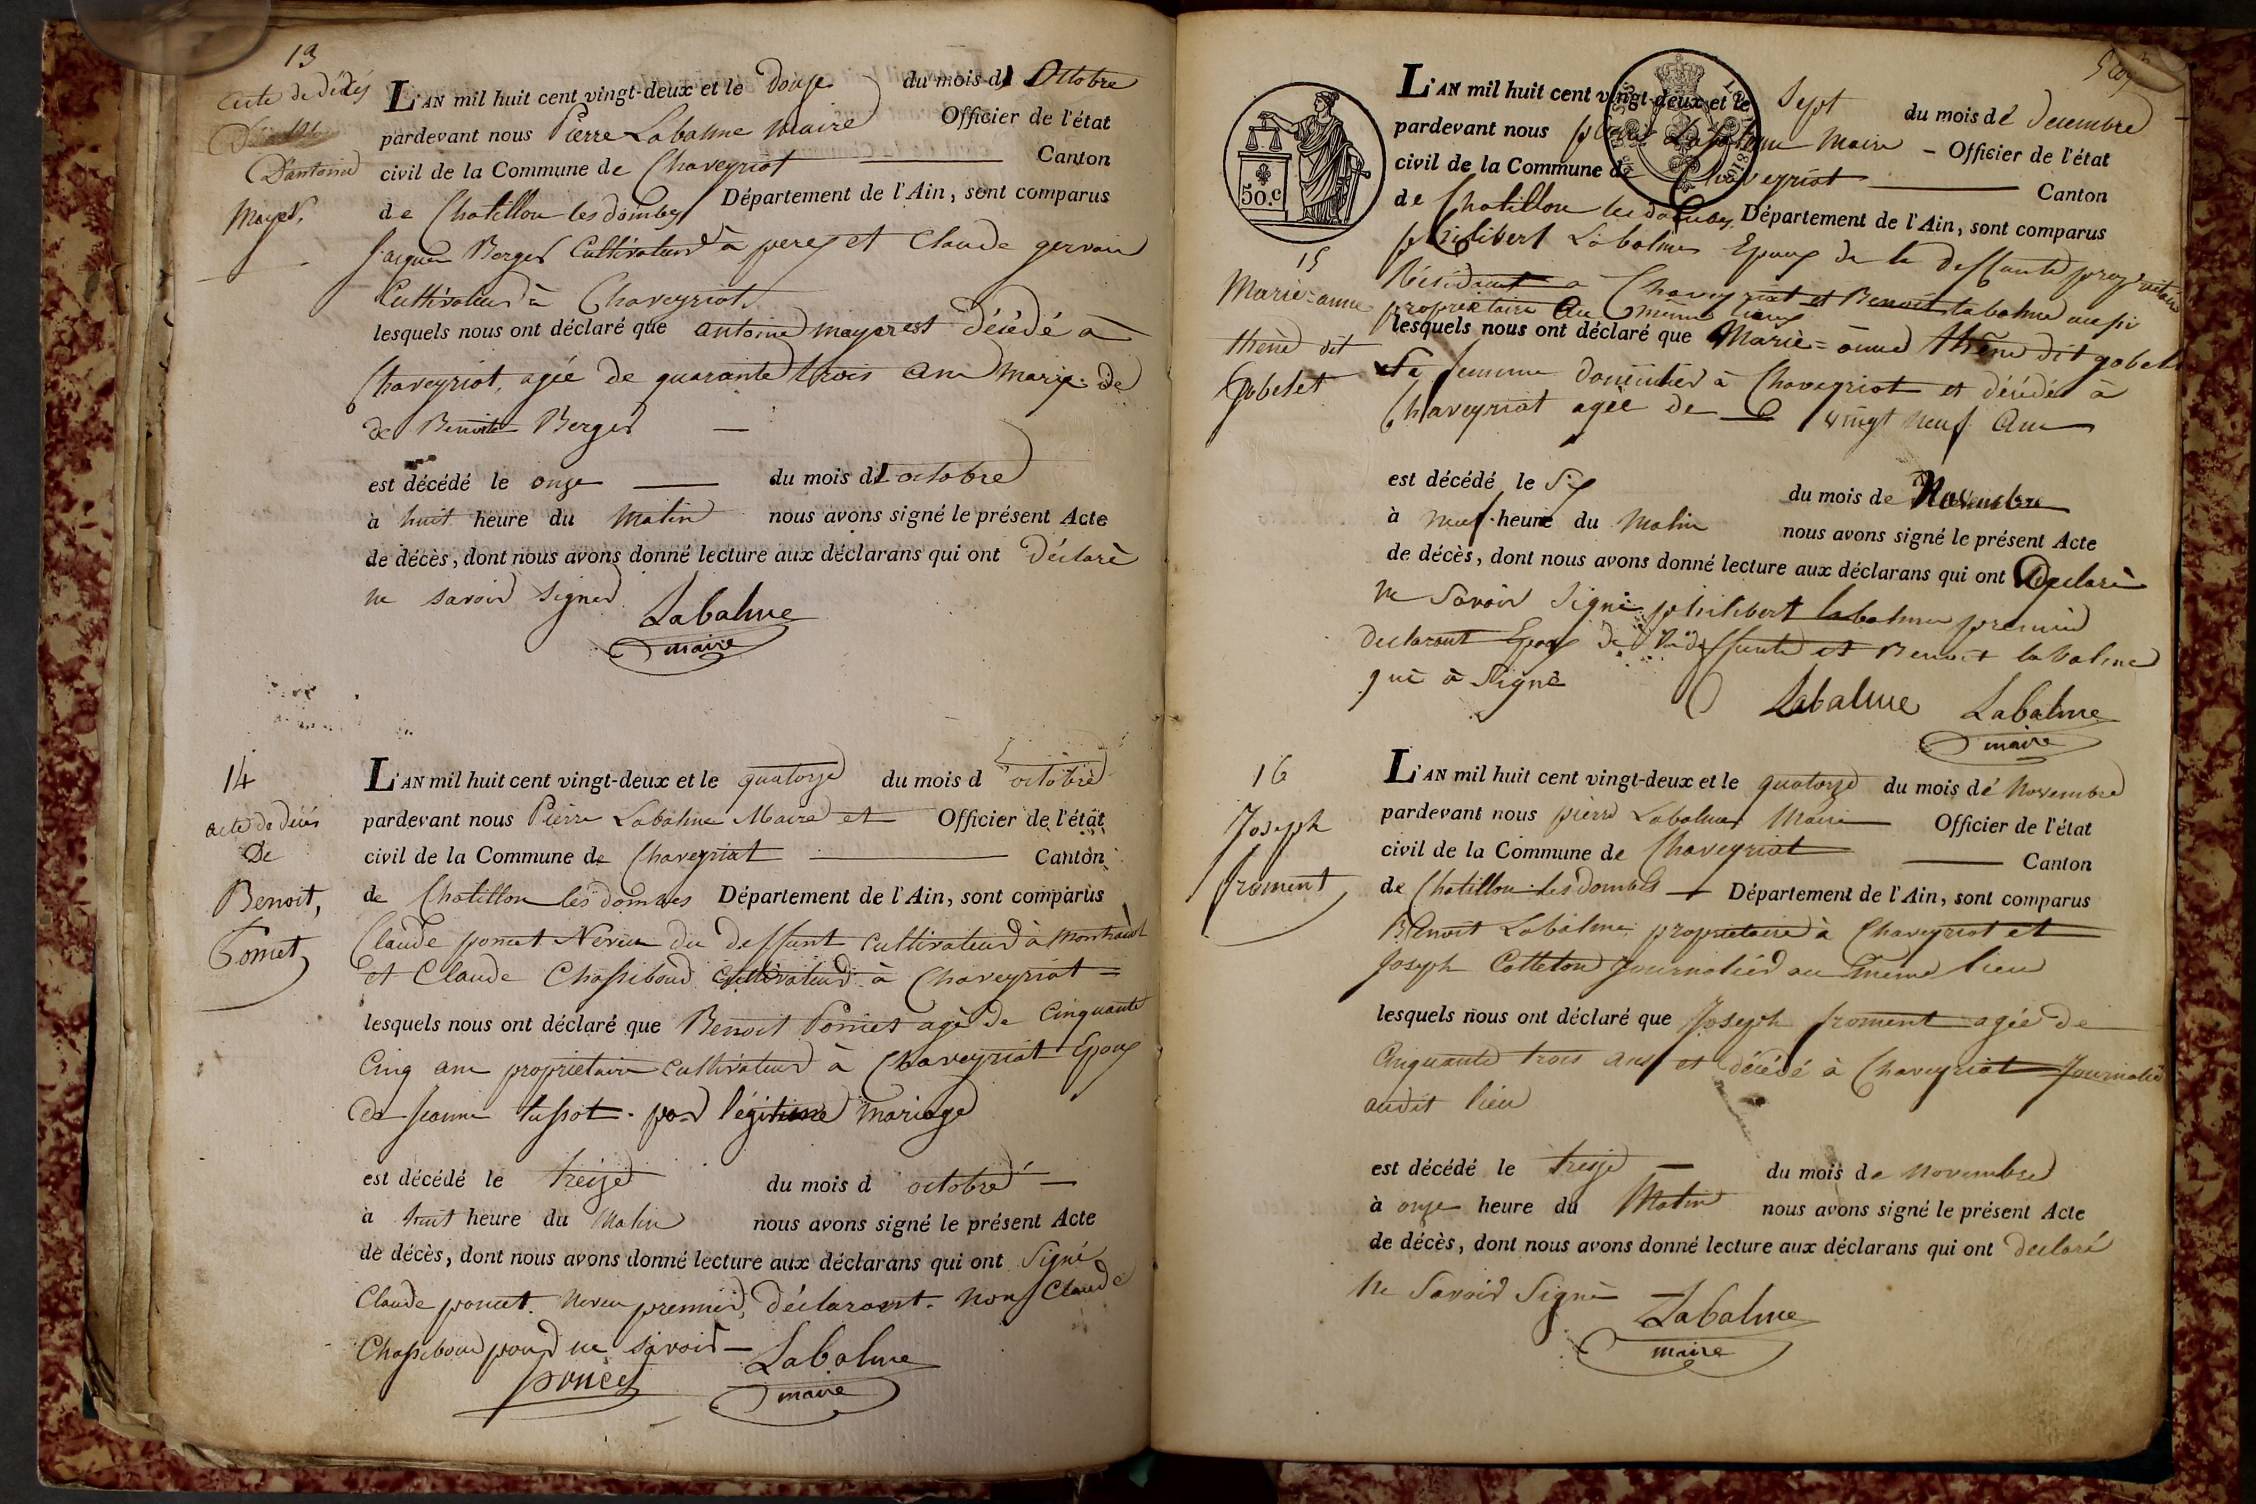 13
Acte de décés
D'antoine
Mayet,
L'AN mil huit cent vingt-deux et le douze du mois d'Octobre
pardevant nous Pierre Labalme maire Officier de l'état
civil de la Commune de Chaveyriat Canton
de Chatillon les dombes Département de l'Ain, sont comparus
Berger Cultivateur à et Claude gervais
Cultivateur à Chaveyriat
lesquels nous ont déclaré que antoine mayet est décédé à
Chaveyriat, agée de quarante trois ans Marié de
de Benoite Berger
est décédé le onze du mois d'octobre
à huit heure du Matin nous avons signé le présent Acte
de décès, dont nous avons donné lecture aux déclarans qui ont déclaré
ne savoir signer
Labalme
maire
14
acte de décés
De
Benoit,
Poncet
L'AN mil huit cent vingt-deux et le quatorze du mois d octobre
pardevant nous Pierre Labalme Maire et Officier de l'état
civil de la Commune de Chaveyriat Canton
de Chatillon les dombes Département de l'Ain, sont comparus
Claude poncet Neveu du deffunt cultivateur à
et Claude Chassiboud Cultivateur à Chaveyriat
lesquels nous ont déclaré que Benoit Poncet agé de Cinquante
Cinq ans propriétaire cultivateur à Chaveyriat Epoux
de Jeanne par légitime Mariage
est décédé le treize du mois d octobre
à huit heure du Matin nous avons signé le présent Acte
de décès, dont nous avons donné lecture aux déclarans qui ont Signé
Claude poncet. Neveu premier, déclarant. Non Claude
Chassiboud pour ne savoir
poncet
Labalme
maire
50.c
L'AN mil huit cent vingt-deux et le Sept du mois de decembre
pardevant nous pierre Labalme Maire Officier de l'état
civil de la Commune de Chaveyriat Canton
de Chatillon les dombes, Département de l'Ain, sont comparus
philibert Labalme Epoux de la deffunte propriétaire
Résidant a Chaveyriat et Benoit labalme aussi
propriétaire au même lieux
15
Marie-anne
thène dit
gobelet
lesquels nous ont déclaré que Marie=anne thène dit gobelet
Sa femme domicilié à Chaveyriat et décédée à
Chaveyriat agée de vingt neuf Ans
est décédé le Six du mois de Novembre
à neuf heure du Matin nous avons signé le présent Acte
de décès, dont nous avons donné lecture aux déclarans qui ont Declaré
ne Savoir Signé philibert labalme premier
declarant Epoux de la deffunte et Benoit labalme
qui à Signé
Labalme Labalme
maire
16
Joseph
froment
L'AN mil huit cent vingt-deux et le quatorze du mois de Novembre
pardevant nous pierre Labalme Maire Officier de l'état
civil de la Commune de Chaveyriat Canton
de Chatillon les dombes Département de l'Ain, sont comparus
Benoit Labalme propriétaire à Chaveyriat et
Joseph Colleton Journalier au même lieu
lesquels nous ont déclaré que Joseph froment agée de
Cinquante trois ans et décédé à Chaveyriat Journalier
audit lieu
est décédé le treize du mois de novembre
à onze heure du Matin nous avons signé le présent Acte
de décès, dont nous avons donné lecture aux déclarans qui ont declaré
ne Savoir Signé
Labalme
maire